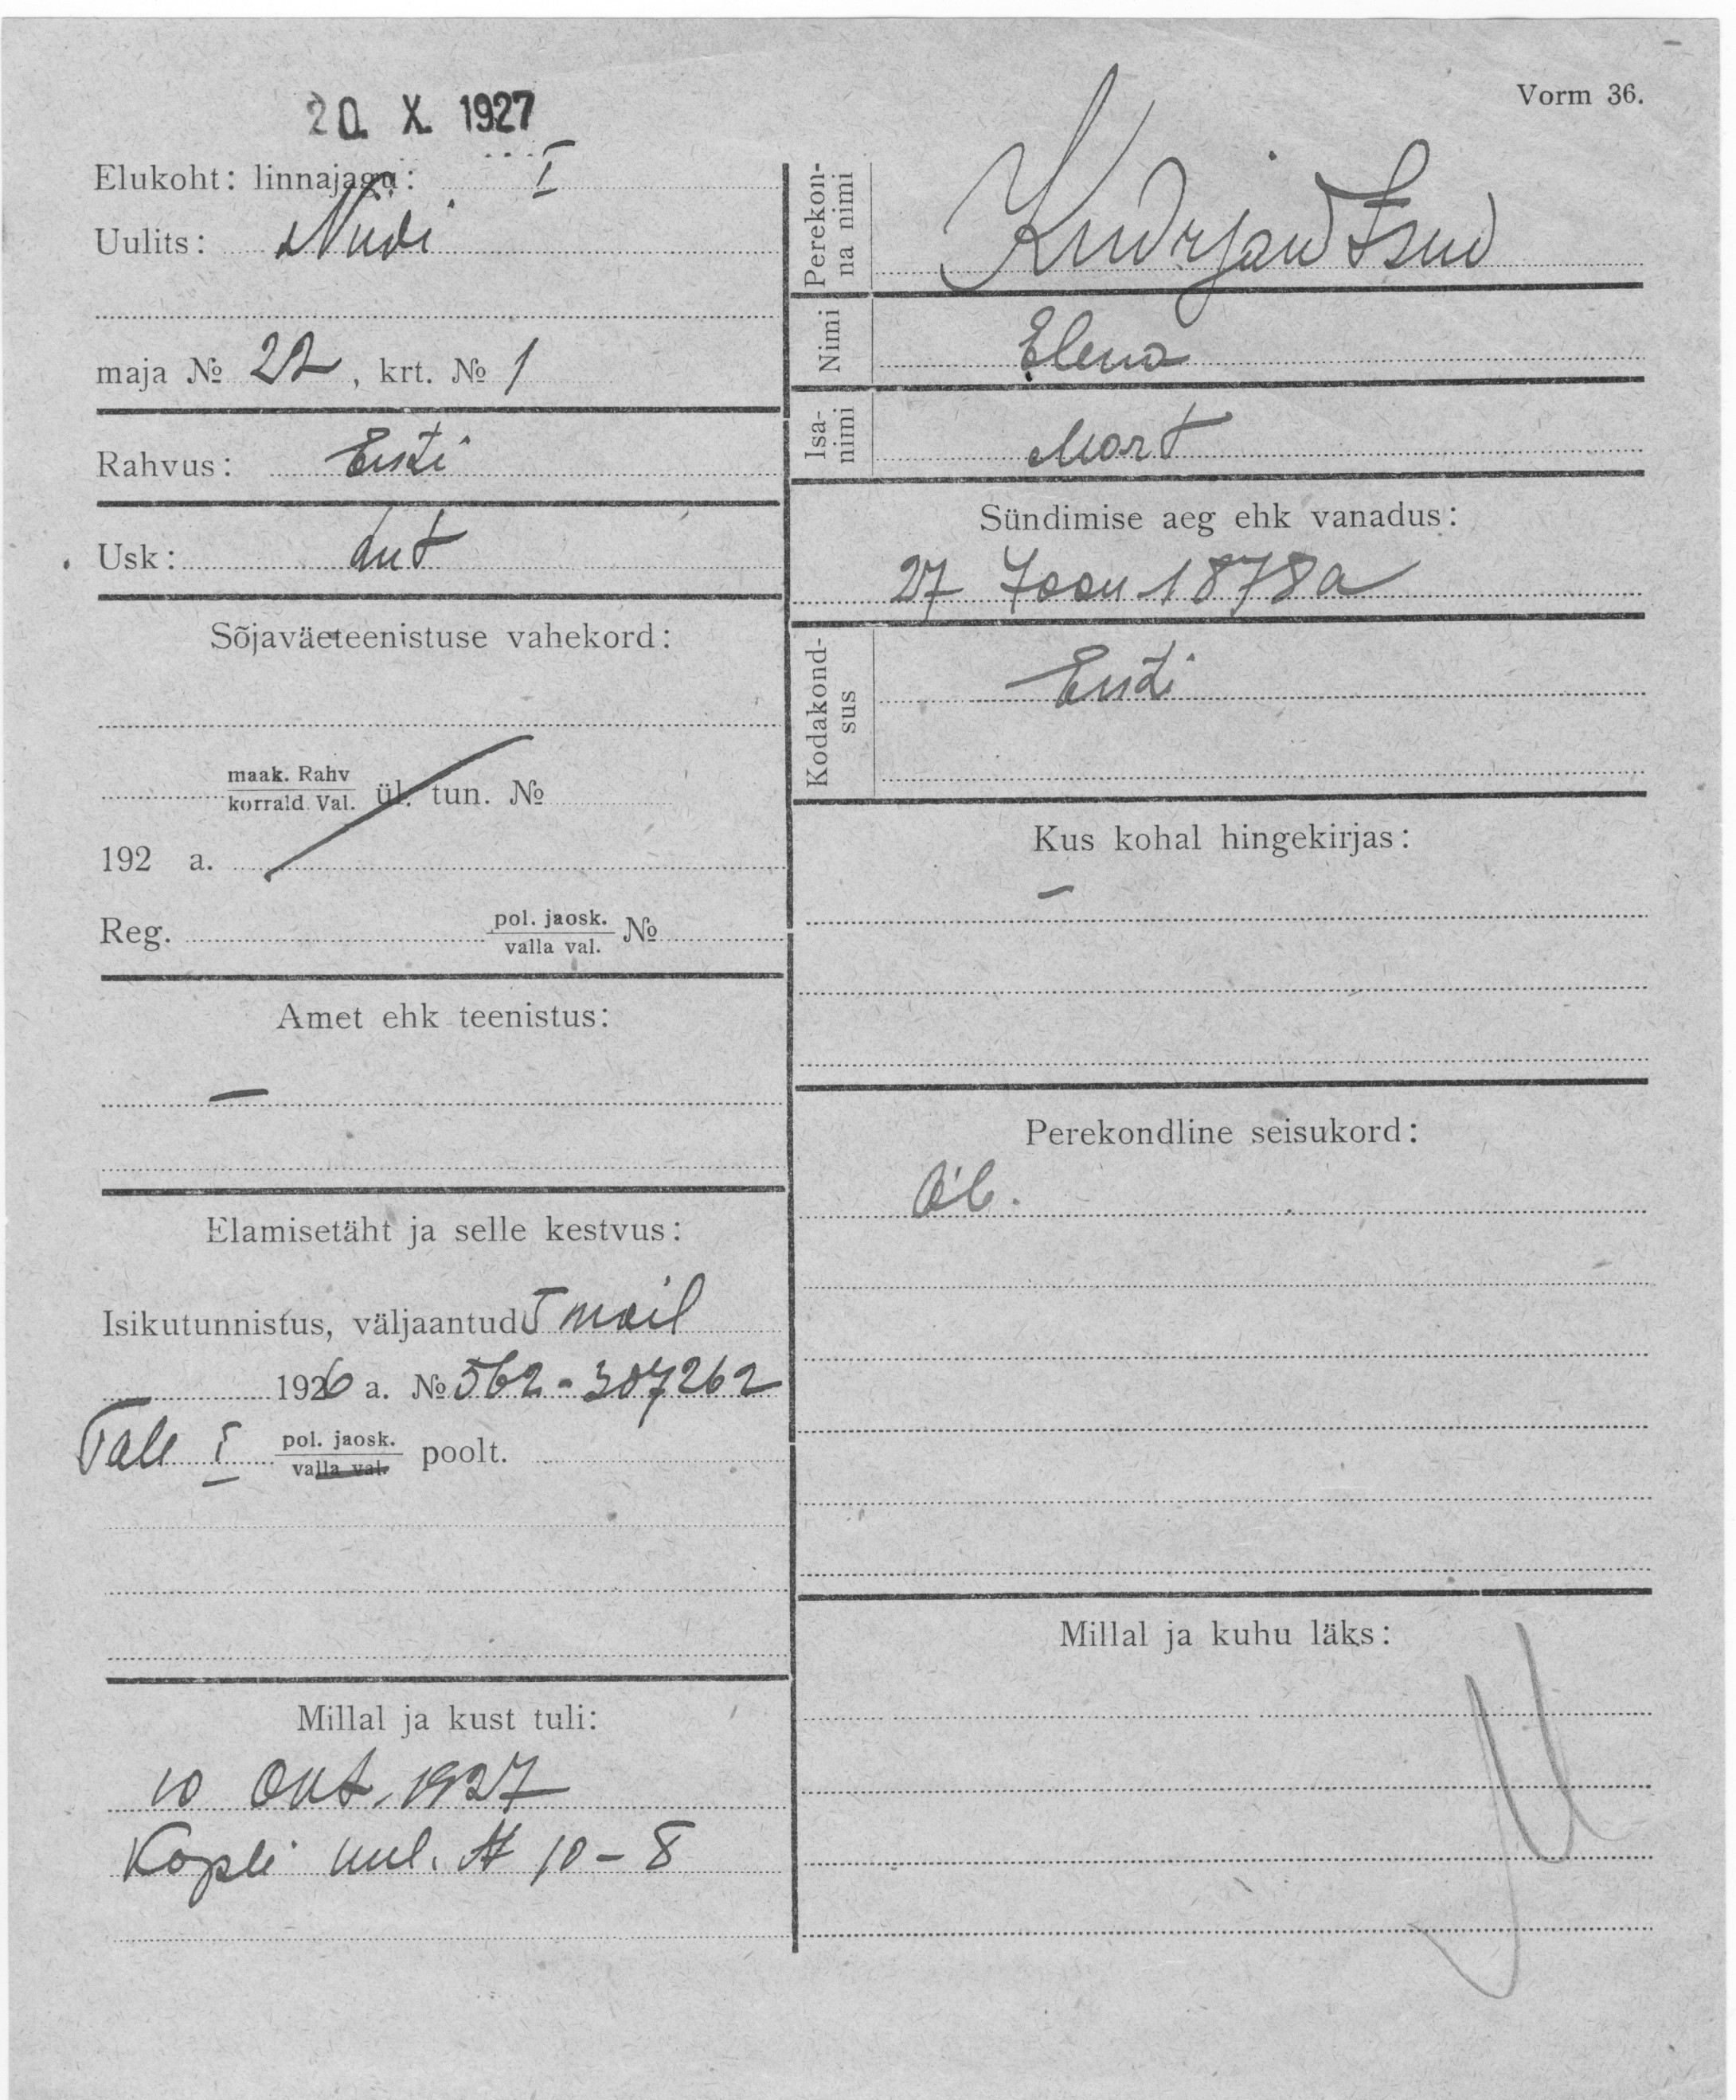 20. X. 1927
Vorm 36.
Elukoht: linnajagu: I
Uulits: Niidi
maja № 22, krt. № 1
Rahvus: Eesti
Usk: Lut
Sõjaväeteenistuse vahekord:
maak. Rahv
korrald. Val. ül. tun. №
192 a.
Reg. pol. jaosk. №
valla val.
Amet ehk teenistus:
–
Elamisetäht ja selle kestvus:
Isikutunnistus, väljaantud 5 mail
1926 a. № 562-307262
Tall I pol. jaosk. poolt.
valla val.
Millal ja kust tuli:
10 Okt. 1927
Kopli uul. № 10-8
Perekonna nimi
Nimi Elena
Isanimi Mart
Sündimise aeg ehk vanadus:
27 Joon 1878 a
Kodakondsus Eesti
Kus kohal hingekirjas:
–
Perekondline seisukord:
Millal ja kuhu läks: